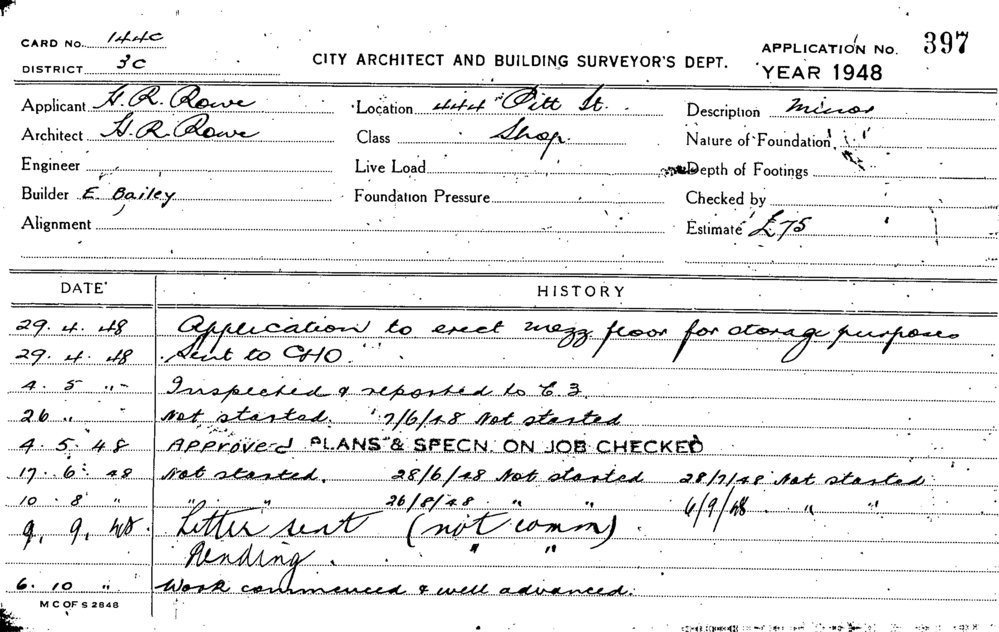 CARD No. 144C
DISTRICT 3C
CITY ARCHITECT AND BUILDING SURVEYOR'S DEPT.
APPLICATION No. 397
YEAR 1948
Applicant H. R. Rowe Location 444 Pitt St. Description Minor
Architect H. R. Rowe Class Shop. Nature of Foundation
Engineer Live Load Depth of Footings
Builder E. Bailey Foundation Pressure Checked by
Alignment Estimate £75
DATE HISTORY
29. 4. 48 Application to erect mezz floor for storage purposes
29. 4. 48 Sent to CHO.
4. 5 " Inspected & reported to C.3.
26 " Not started. 7/6/48 Not started
4. 5. 48 Approved PLANS & SPECN. ON JOB CHECKED
17. 6. 48 Not started. 28/6/48 Not started 28/7/48 Not started
10. 8 " " " 26/8/48 " " 6/9/48. " "
9. 9. 48. Letter sent (not comm)
Pending. " "
6. 10 " Work commenced & well advanced.
M C OF S 2848